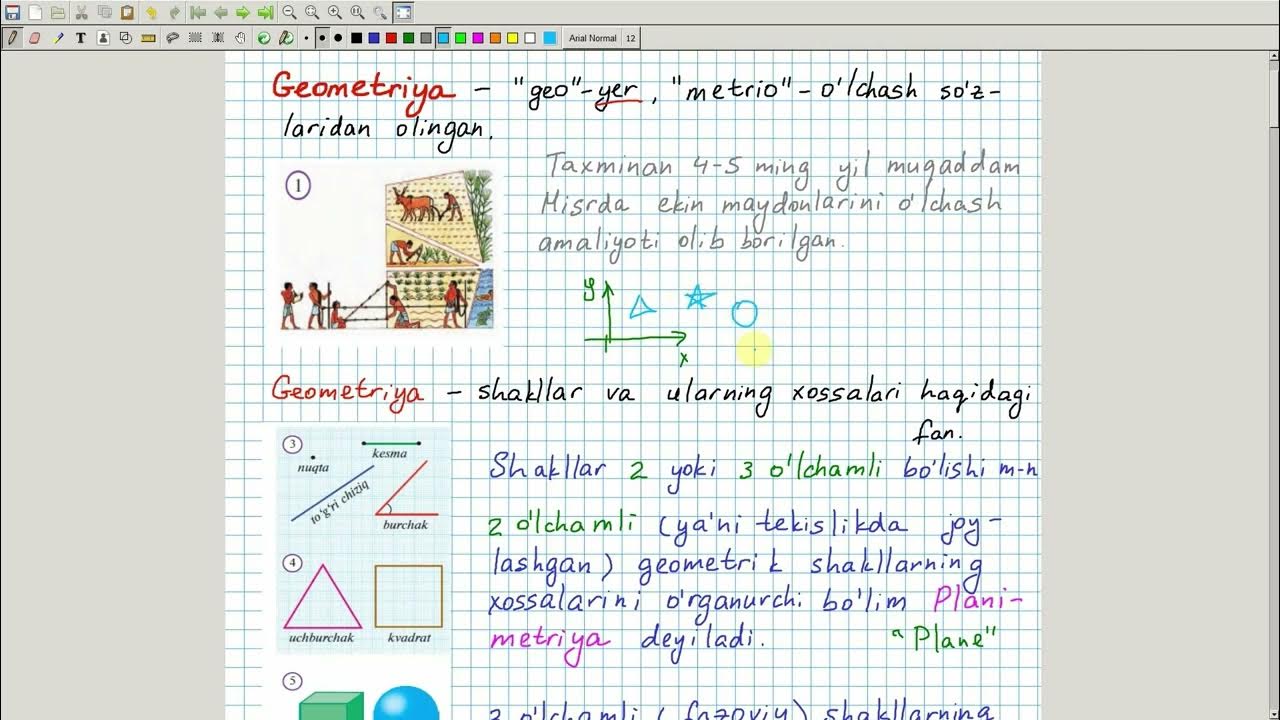 Arial Normal 12
Geometriya – "geo"-yer, "metrio"- o'lchash so'z-
laridan olingan.
1
Taxminan 4-5 ming yil muqaddam
Misrda ekin maydonlarini o'lchash
amaliyoti olib borilgan.
y
x
Geometriya – shakllar va ularning xossalari haqidagi
fan.
3
nuqta
kesma
to'g'ri chiziq
burchak
Shakllar 2 yoki 3 o'lchamli bo'lishi m-n
2 o'lchamli (ya'ni tekislikda joy-
lashgan) geometrik shakllarning
xossalarini o'rganurchi bo'lim Plani-
metriya deyiladi. "Plane"
4
uchburchak
kvadrat
5
3 o'lchamli (fazoviy) shakllarning